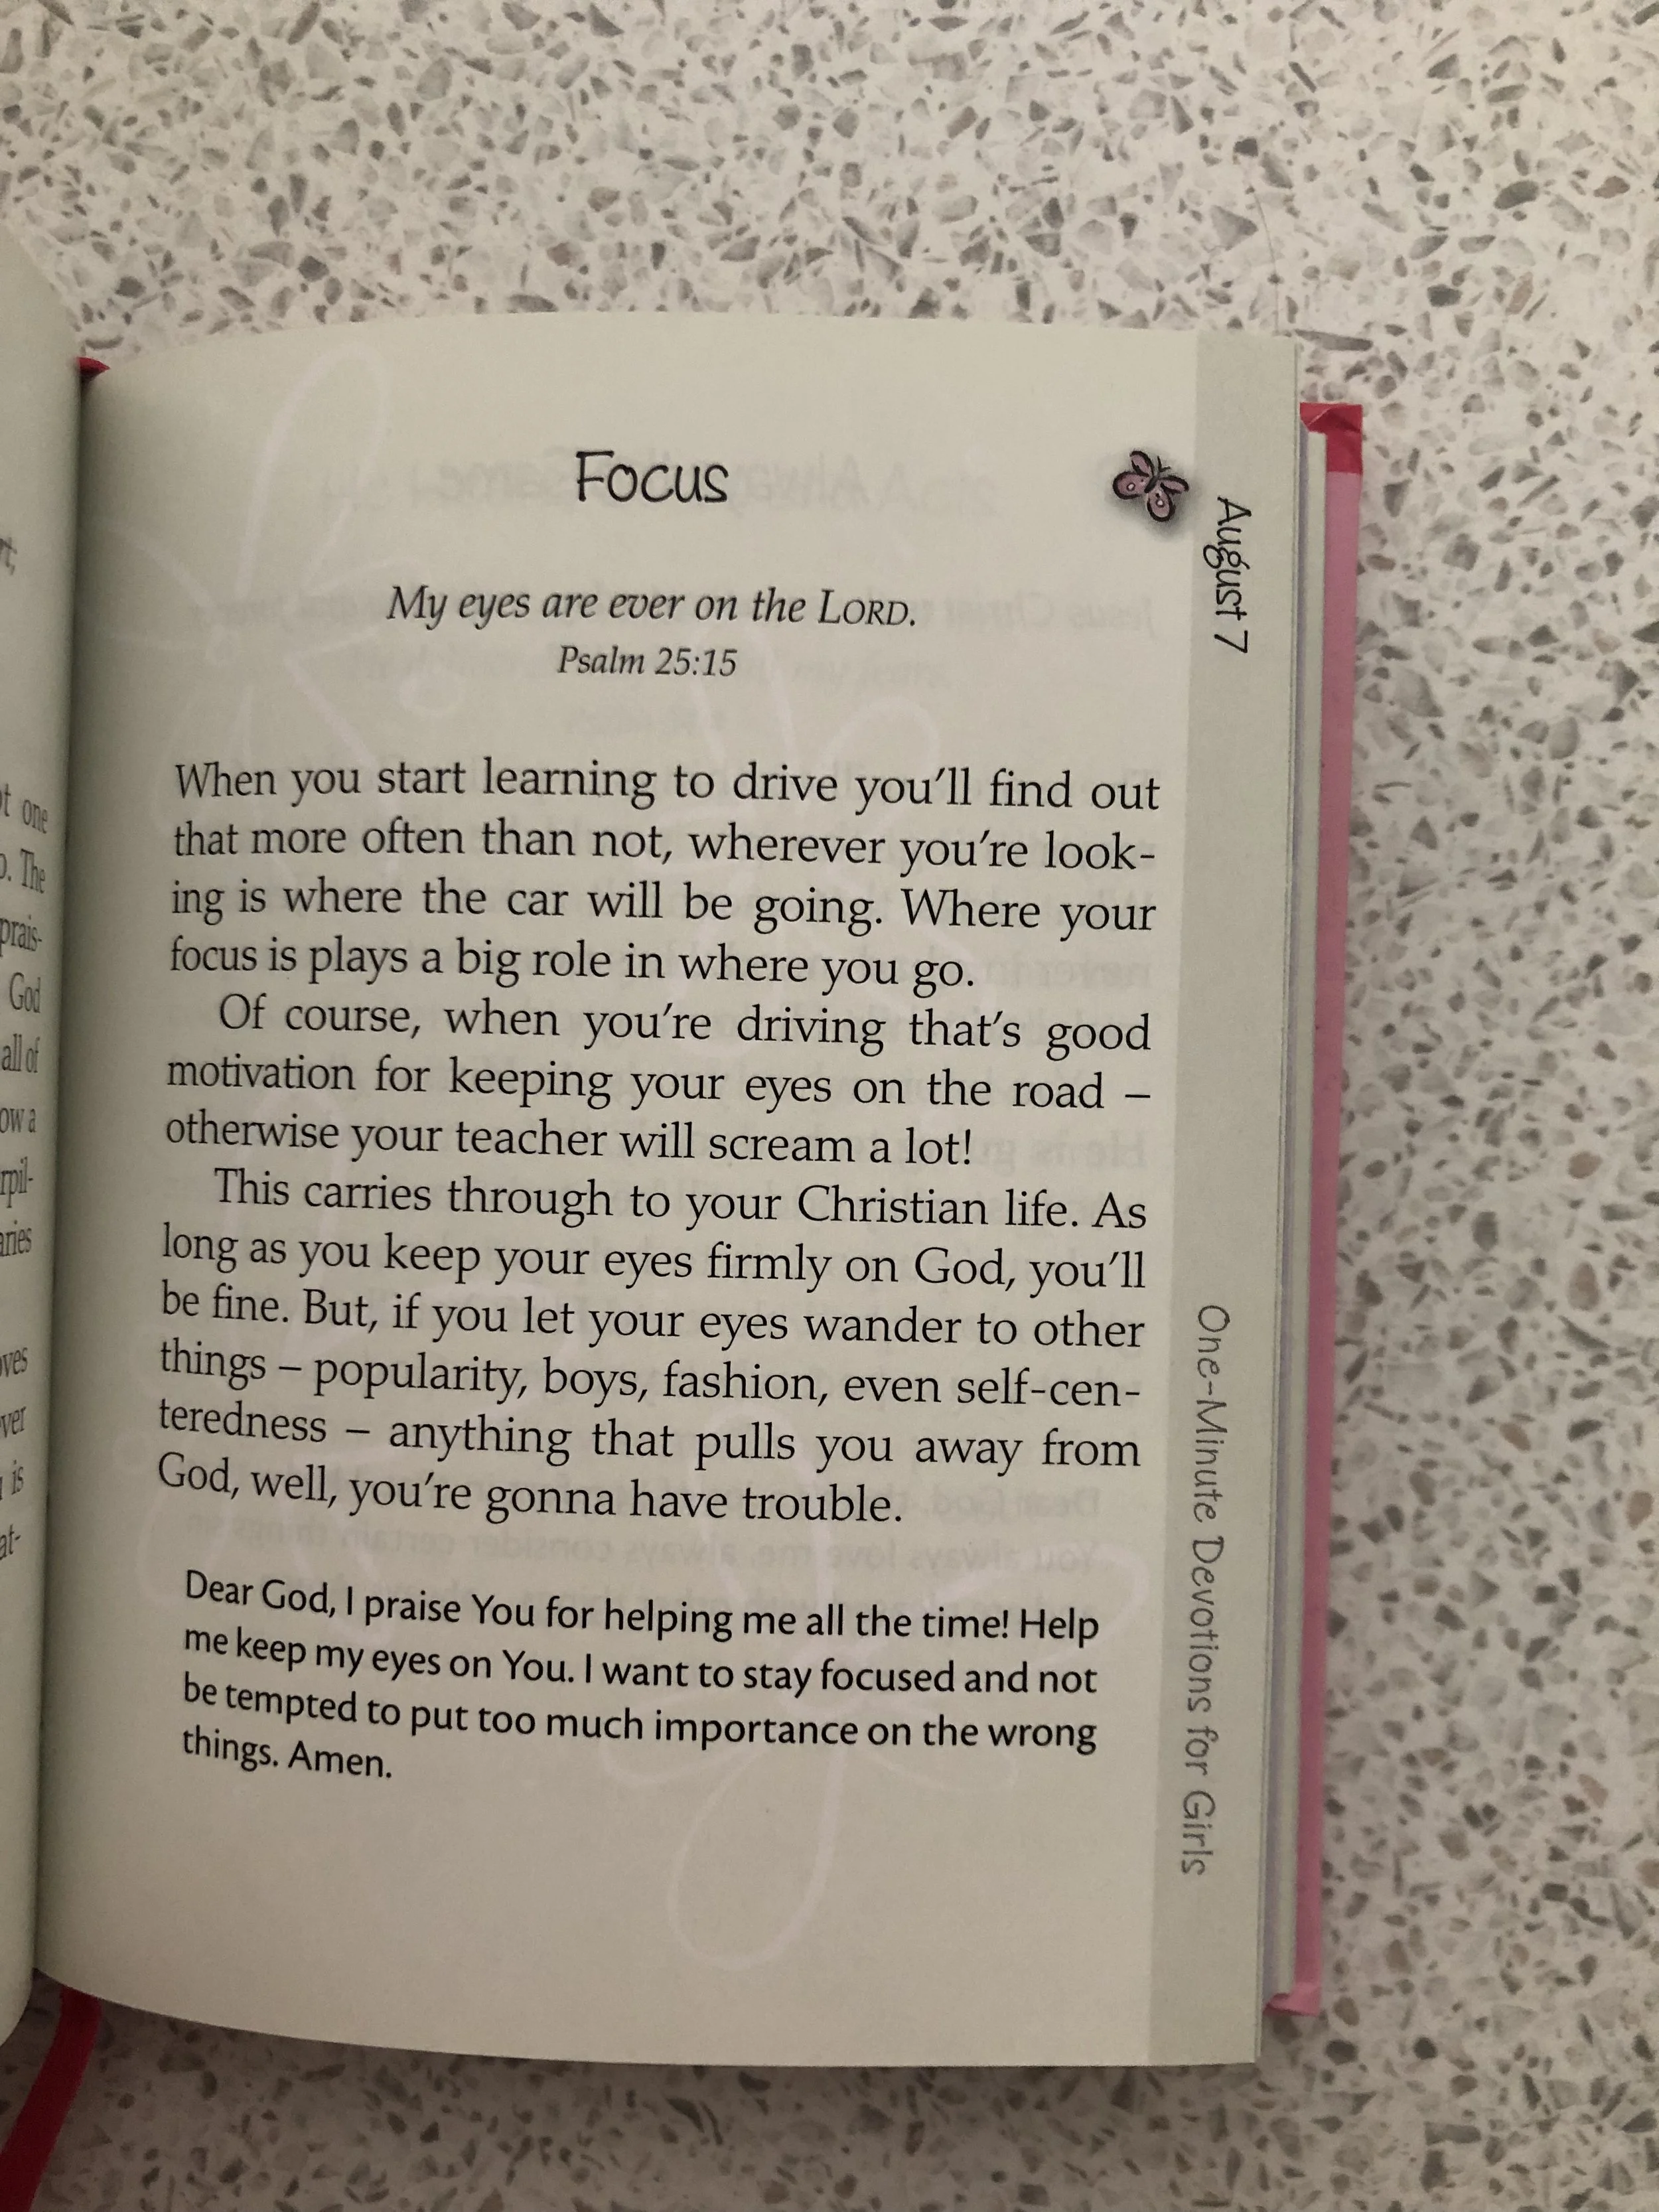 Focus
My eyes are ever on the LORD.
Psalm 25:15
When you start learning to drive you'll find out
that more often than not, wherever you're look-
ing is where the car will be going. Where your
focus is plays a big role in where you go.
Of course, when you're driving that's good
motivation for keeping your eyes on the road –
otherwise your teacher will scream a lot!
This carries through to your Christian life. As
long as you keep your eyes firmly on God, you'll
be fine. But, if you let your eyes wander to other
things – popularity, boys, fashion, even self-cen-
teredness – anything that pulls you away from
God, well, you're gonna have trouble.
Dear God, I praise You for helping me all the time! Help
me keep my eyes on You. I want to stay focused and not
be tempted to put too much importance on the wrong
things. Amen.
August 7
One-Minute Devotions for Girls
one
The
God
all of
is